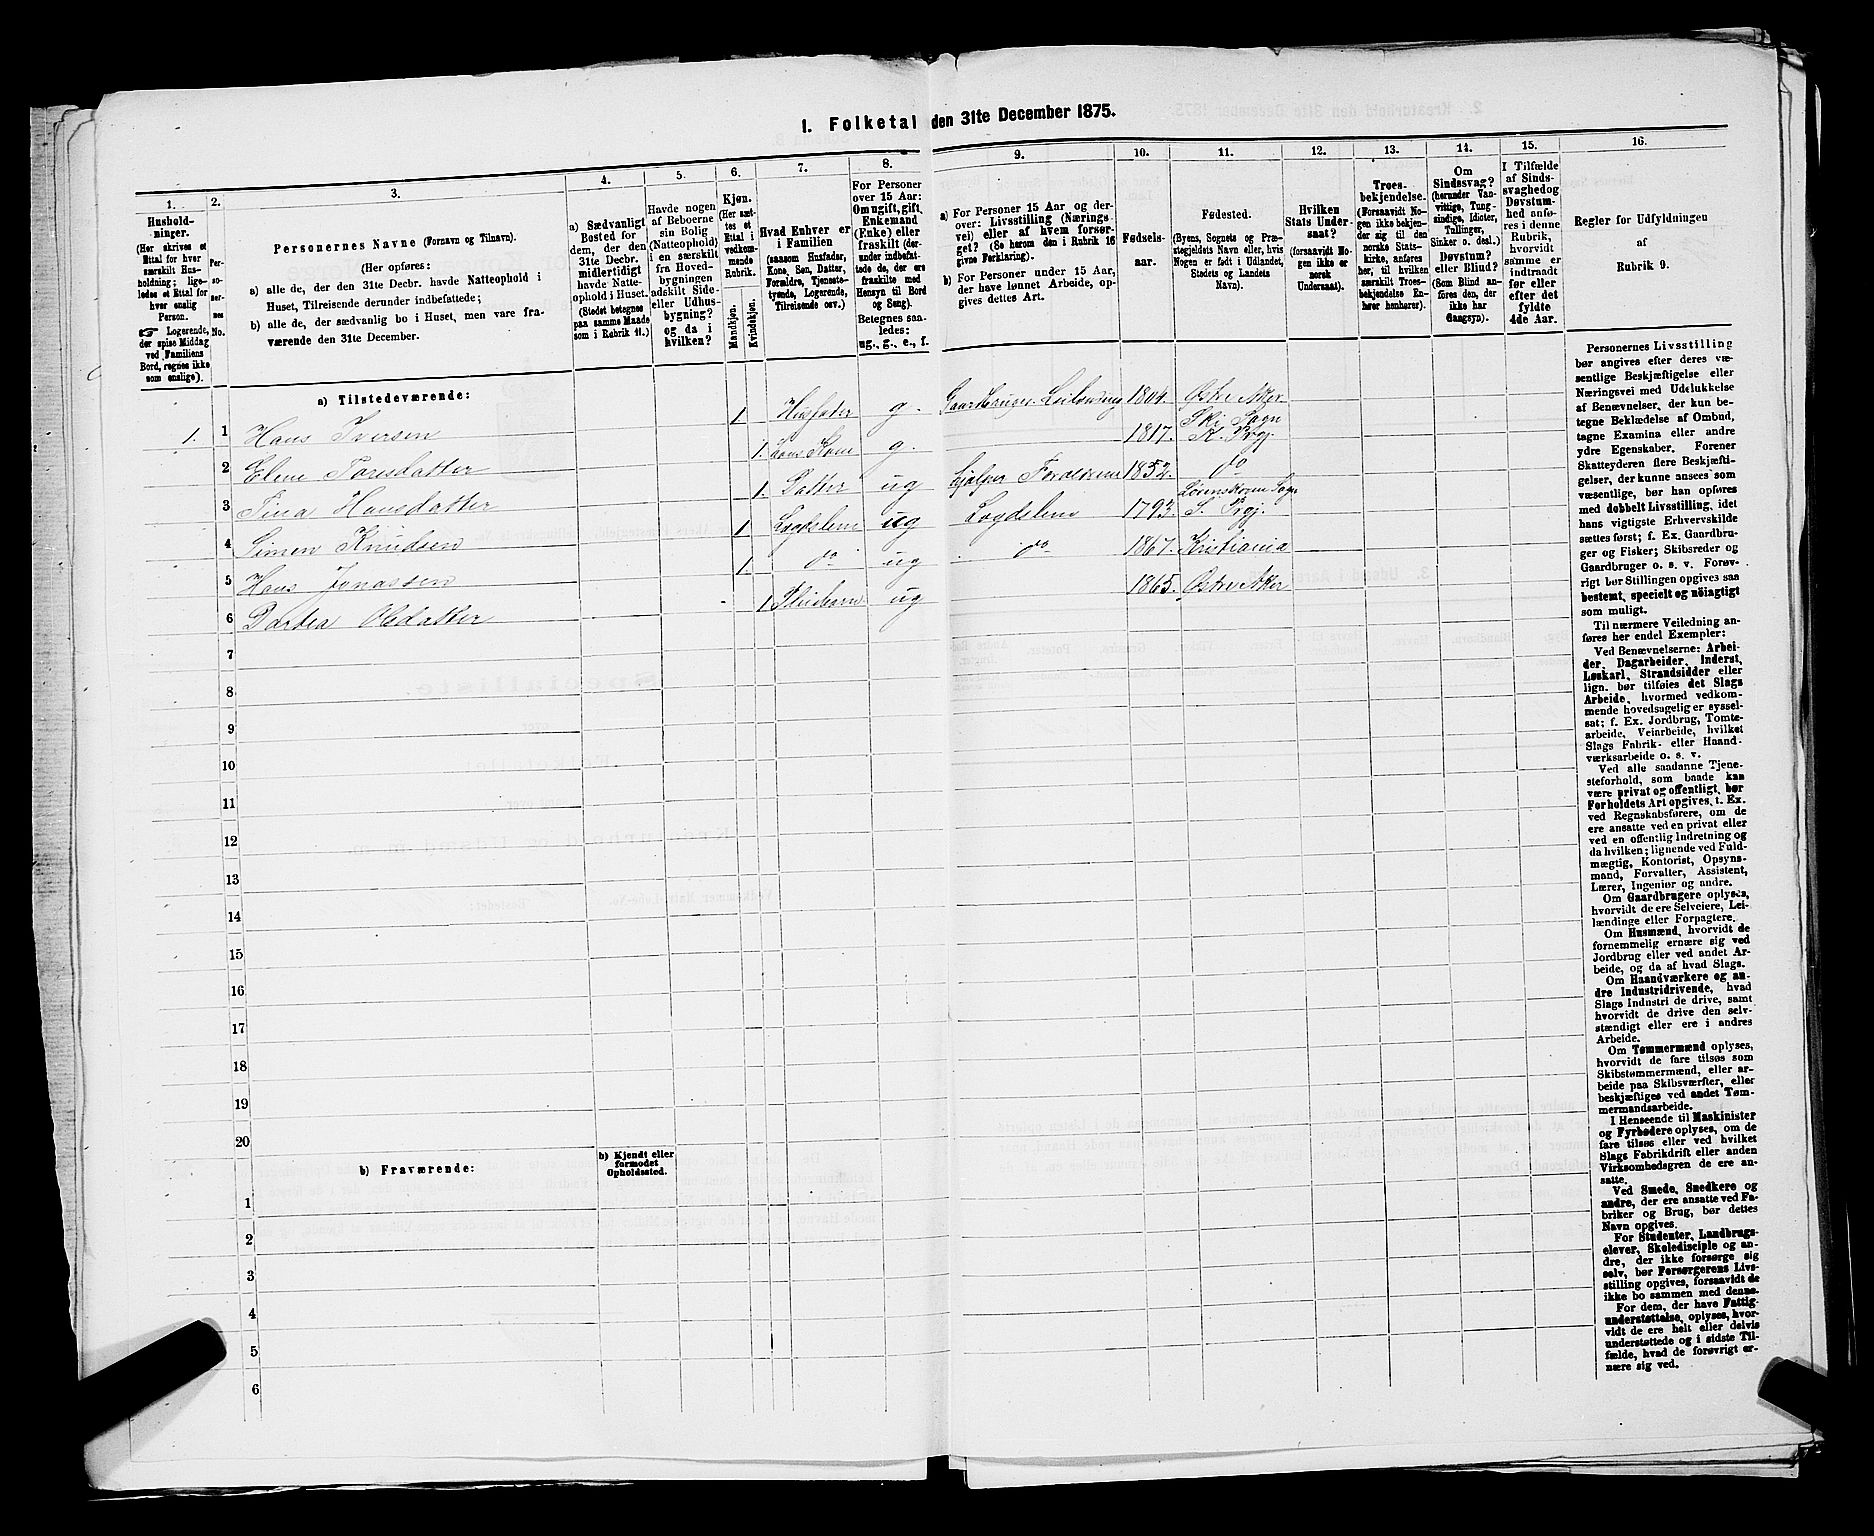 I. Folketal den 31te December 1875.
1.
Hushold-
ninger.
(Her skrives et
Ettal for hver
særskilt Hus-
holdning; lige-
ledes et Ettal for
hver enslig
Person.
☞ Logerende,
der spise Middag
ved Familiens
Bord, regnes ikke
som enslige).
2.
Per-
so-
ner-
nes
No.
3.
Personernes Navne (Fornavn og Tilnavn).
(Her opføres:
a) alle de, der den 31te Decbr. havde Natteophold i
Huset, Tilreisende derunder indbefattede;
b) alle de, der sædvanlig bo i Huset, men vare fra-
værende den 31te December.
4.
a) Sædvanligt
Bosted for
dem, der den
31te Decbr.
midlertidigt
havde Natte-
ophold i Huset.
(Stedet betegnes
paa samme Maade
som i Rubrik 11.)
5.
Havde nogen
af Beboerne
sin Bolig
(Natteophold)
i en særskilt
fra Hoved-
bygningen
adskilt Side-
eller Udhus-
bygning?
og da i
hvilken?
6.
Kjøn.
(Her sæt-
tes et
Ettal i
vedkom-
mende
Rubrik.
Mandkjøn.
Kvindekjøn.
7.
Hvad Enhver er
i Familien
(saasom Husfader,
Kone, Søn, Datter,
Forældre, Tjeneste-
tyende, Logerende,
Tilreisende osv.)
8.
For Personer
over 15 Aar:
Om ugift, gift,
Enkemand
(Enke) eller
fraskilt (der-
under indbefat-
tede de, der ere
fraskilte med
Hensyn til Bord
og Seng).
Betegnes saa-
ledes:
ug., g., e., f.
9.
a) For Personer 15 Aar og der-
over: Livsstilling (Nærings-
vei) eller af hvem forsør-
get? (Se herom den i Rubrik 16
givne Forklaring).
b) For Personer under 15 Aar,
der have lønnet Arbeide, op-
gives dettes Art.
10.
Fødsels-
aar.
11.
Fødested.
(Byens, Sognets og Præ-
stegjeldets Navn eller, hvis
Nogen er født i Udlandet,
Stedets og Landets
Navn).
12.
Hvilken
Stats Under-
saat?
(forsaavidt No-
gen ikke er
norsk
Undersaat).
13.
Troes-
bekjendelse.
(Forsaavidt No-
gen ikke bekjen-
der sig til den
norske Stats-
kirke, anføres
her, til hvilken
særskilt Troes-
bekjendelse En-
hver henhører).
14.
Om
Sindssvag?
(herunder Van-
vittige, Tung-
sindige, Idioter,
Tullinger,
Sinker o. desl.)
Døvstum?
eller Blind?
(Som Blind an-
føres den, der
ikke har
Gangsyn).
15.
I Tilfælde
af Sinds-
svaghed og
Døvstum-
hed anfø-
res i denne
Rubrik,
hvorvidt
samme er
indtraadt
før eller
efter det
fyldte
4de Aar.
16.
Regler for Udfyldningen
af
Rubrik 9.
a) Tilstedeværende:
1. 1 Hans Iversen 1. Husfader g. Gaardbruger Leilending 1804. Østre Aker
2 Elene Toresdatter 1. hans Kone g. 1817. Ski Sogn K. Prgj.
3 Tina Hansdatter 1. Datter ug hjælper Forældrene 1852. do
4 Simen Knudsen 1 Lægdslem ug Lægdslem 1793. Lørenskoven Sogn S. Prgj.
5 Hans Jonassen 1. do ug do 1867. Kristiania
6 Dortea Olsdatter 1 Pleiebarn ug 1865. Østre Aker
7
8
9
10
11
12
13
14
15
16
17
18
19
20
b) Fraværende:
b) Kjendt eller
formodet
Opholdssted.
1
2
3
4
5
6
Personernes Livsstilling
bør angives efter deres væ-
sentlige Beskjæftigelse eller
Næringsvei med Udelukkelse
af Benævnelser, der kun be-
tegne Beklædelse af Ombud,
tagne Examina eller andre
ydre Egenskaber. Forener
Skatteyderen flere Beskjæfti-
gelser, der kunne ansees som
væsentlige, bør han opføres
med dobbelt Livsstilling, idet
hans vigtigste Erhvervskilde
sættes først; f. Ex. Gaardbru-
ger og Fisker; Skibsreder og
Gaardbruger o. s. v. Forøv-
rigt bør Stillingen opgives saa
bestemt, specielt og nøiagtigt
som muligt.
Til nærmere Veiledning an-
føres her endel Exempler:
Ved Benævnelserne: Arbei-
der, Dagarbeider, Inderst,
Løskarl, Strandsidder eller
lign. bør tilføies det Slags
Arbeide, hvormed vedkom-
mende hovedsagelig er syssel-
sat; f. Ex. Jordbrug, Tomte-
arbeide, Veiarbeide, hvilket
Slags Fabrik- eller Haand-
værksarbeide o. s. v.
Ved alle saadanne Tjene-
steforhold, som baade kan
være privat og offentligt, bør
Forholdets Art opgives, t. Ex.
ved Regnskabsførere, om de
ere ansatte ved en privat eller
ved en offentlig Indretning og
da hvilken; lignende ved Fuld-
mægtig, Kontorist, Opsyns-
mand, Forvalter, Assistent,
Lærer, Ingeniør og andre.
Om Gaardbrugere oplyses,
hvorvidt de ere Selveiere, Lei-
lændinge eller Forpagtere.
Om Husmænd, hvorvidt de
fornemmelig ernære sig ved
Jordbrug eller ved andet Ar-
beide, og da af hvad Slags.
Om Haandværkere og an-
dre Industridrivende, hvad
Slags Industri de drive, samt
hvorvidt de drive den selv-
stændigt eller ere i andres
Arbeide.
Om Tømmermænd oplyses,
hvorvidt de fare tilsøs som
Skibstømmermænd, eller ar-
beide paa Skibsværfter, eller
beskjæftiges ved andet Tøm-
mermandsarbeide.
I Henseende til Maskinister
og Fyrbødere oplyses, om de
fare tilsøs eller ved hvilket
Slags Fabrikdrift eller anden
Virksomhedsgren de ere an-
satte.
Ved Smede, Snedkere og
andre, der ere ansatte ved Fa-
briker og Brug, bør dettes
Navn opgives.
For Studenter, Landbrugs-
elever, Skoledisciple og an-
dre, der ikke forsørge sig
selv, bør Forsørgerens Livs-
stilling opgives, forsaavidt de
ikke bo sammen med denne.
For dem, der have Fattig-
understøttelse, oplyses, hvor-
vidt de ere helt eller delvis
understøttede og i sidste Til-
fælde, hvad de forøvrigt er-
nære sig ved.